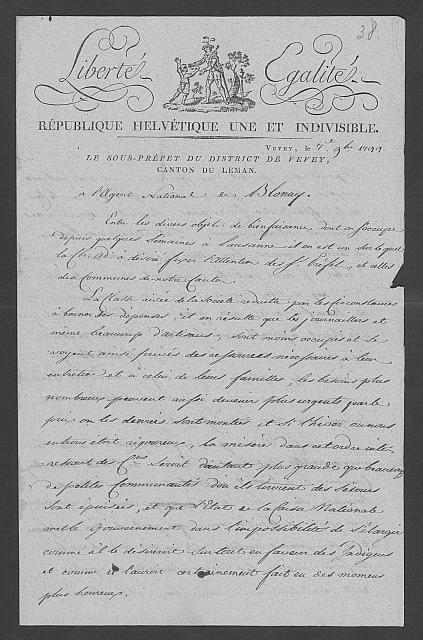 38.
Liberté Egalité
RÉPUBLIQUE HELVÉTIQUE UNE ET INDIVISIBLE.
VEVEY, le 7.e 9bre 1799
LE SOUS-PRÉFET DU DISTRICT DE VEVEY,
CANTON DU LÉMAN.
à l'Agent National de Blonay.
Entre les divers objets de bienfaisance dont on s'occupe
depuis quelques semaines à Lausanne il en est un sur lequel
la désiré fixer l'attention des et celles
des Communes de notre Canton
La classe aisée de la Société reduite par les circonstances
à borner ses dépenses, il en résulte que les journaliers et
même beaucoup d'artisans, sont moins occupés et se
voyent ainsi privés des resources nécessaires à leur
entretien et à celui de leurs familles, les besoins plus
nombreux peuvent aussi devenir plus urgents par le
prix où les denrées sont montées et si l'hiver où nous
entrons étoit rigoureux, la misère dans cet ordre inté-
ressant de Cns seroit d'autant plus grande que beaucoup
de petites Communautés d'où ils tiroient des secours
sont épuisées, et que l'Etat de la Caisse Nationale
met le Gouvernement dans l'impossibilité de s'élargir
comme il le désireroit surtout en faveur des Indigens
et comme il l'auroit certainement fait en des momens
plus heureux.